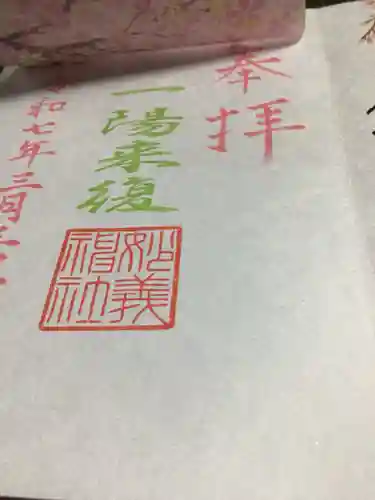 奉拝
一陽来復
妙義神社
和七年三月三